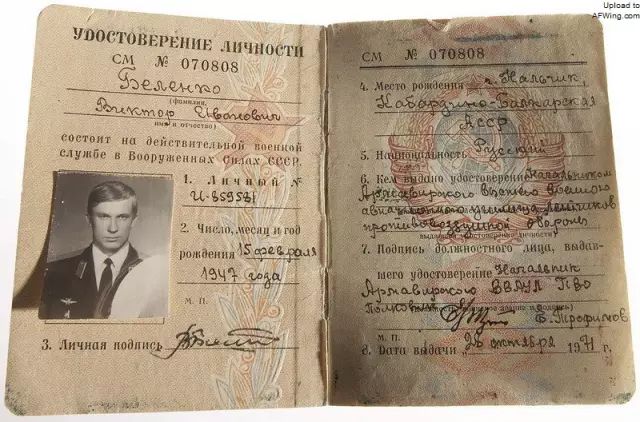 Upload to
AFWing.com
УДОСТОВЕРЕНИЕ ЛИЧНОСТИ
СМ № 070808
Беленко
(фамилия,
Виктор Иванович
имя и отчество)
состоит на действительной военной
службе в Вооруженных Силах СССР.
1. Личный №
И-859581
2. Число, месяц и год
рождения 15 февраля
1947 года
М. П.
3. Личная подпись
СМ № 070808
4. Место рождения г. Нальчик,
Кабардино-Балкарская
АССР
5. Национальность Русский
6. Кем выдано удостоверение Начальником
Армавирского высшего военного
авиационного училища лётчиков
противовоздушной обороны
7. Подпись должностного лица, выдав-
шего удостоверение Начальник
Армавирского ВВАУЛ ПВО
Полковник Трофимов
М. П.
8. Дата выдачи „26 октября 1971 г.